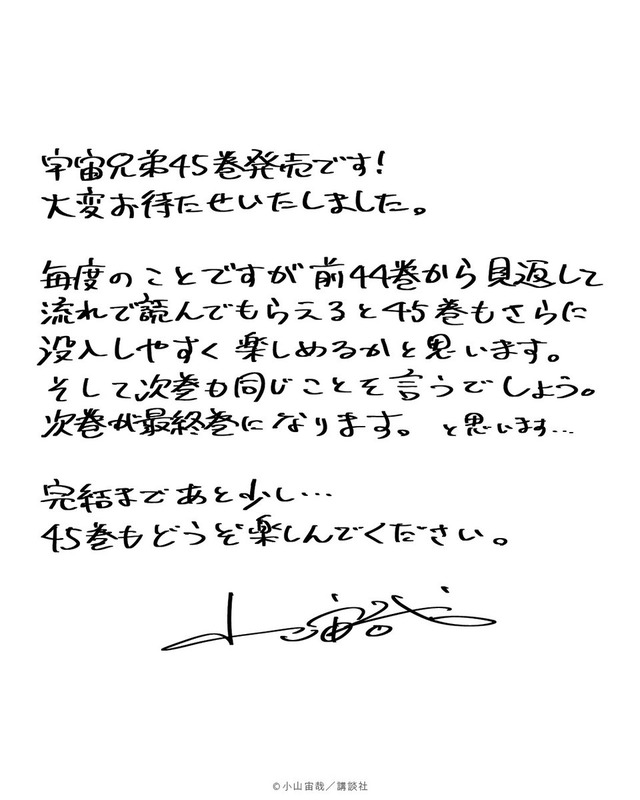 宇宙兄弟45巻発売です!
大変お待たせいたしました。
毎度のことですが前44巻から見返して
流れで読んでもらえると45巻もさらに
没入しやすく楽しめるかと思います。
そして次巻も同じことを言うでしょう。
次巻が最終巻になります。と思います…
完結まであと少し…
45巻もどうぞ楽しんでください。
小山宙哉
©小山宙哉／講談社